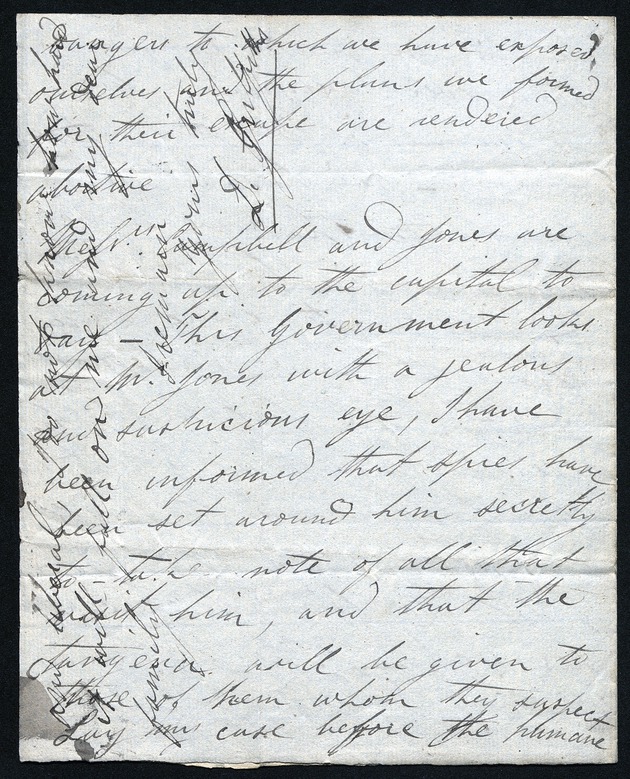 dangers to which we have exposed
ourselves and the plans we formed
for their escape are rendered
abortive
Messrs. Campbell and Jones are
coming up to the capital to
day – This Government looks
at Mr. Jones with a jealous
and suspicious eye, I have
been informed that spies have
been set around him secretly
to take note of all that
visit him, and that the
Tangena will be given to
those of them whom they suspect
Lay my case before the humane
and liberal, and
will call on me and my dear
family
I remain
yours truly
D. Griffiths